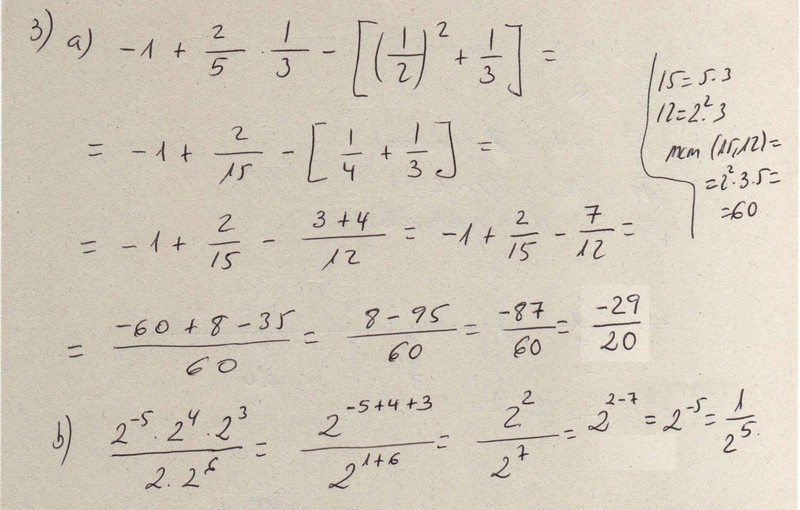 3) a) -1 + 2/5 · 1/3 - [(1/2)^2 + 1/3] =
= -1 + 2/15 - [1/4 + 1/3] =
= -1 + 2/15 - (3+4)/12 = -1 + 2/15 - 7/12 =
= (-60 + 8 - 35)/60 = (8 - 95)/60 = -87/60 = -29/20
15 = 5·3
12 = 2^2·3
mcm (15,12) =
= 2^2·3·5 =
= 60
b) (2^-5 · 2^4 · 2^3)/(2 · 2^6) = 2^(-5+4+3)/2^(1+6) = 2^2/2^7 = 2^(2-7) = 2^-5 = 1/2^5.